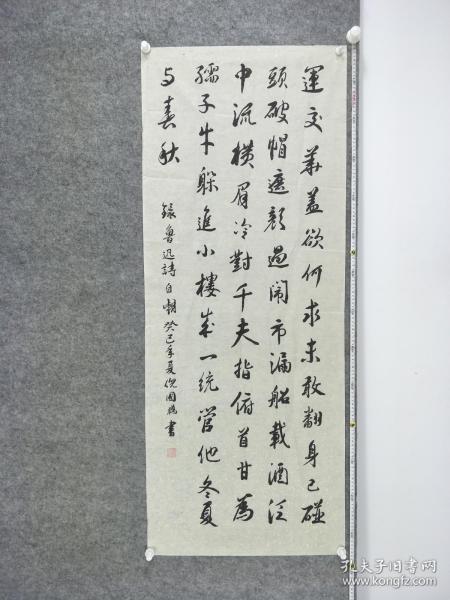 運交華蓋欲何求未敢翻身已碰
頭破帽遮顏過鬧市漏船載酒泛
中流橫眉冷對千夫指俯首甘為
孺子牛躲進小樓成一統管他冬夏
与春秋
錄魯迅詩自嘲癸巳年夏倪國 書
孔夫子旧书网
www.kongfz.com